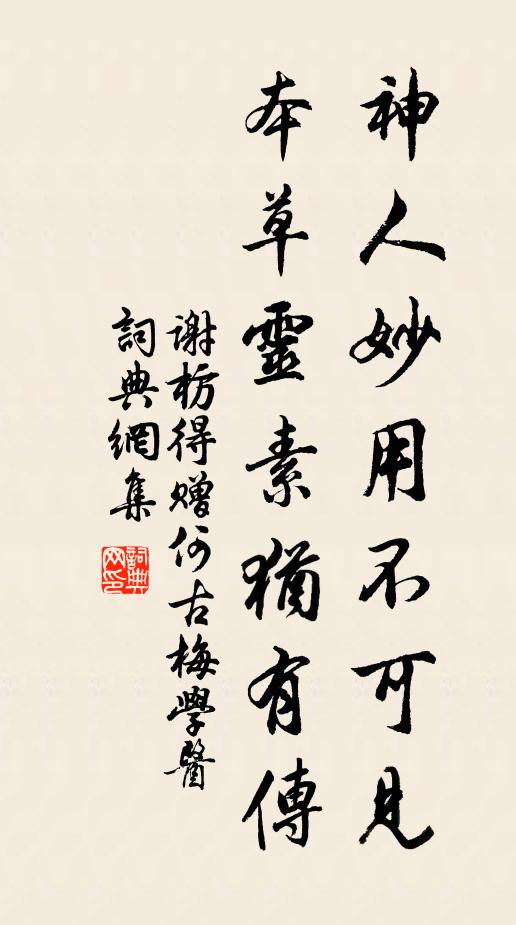 神人妙用不可見
本草靈素猶有傳
謝枋得贈何古梅學醫
詞典網集
詞典網印